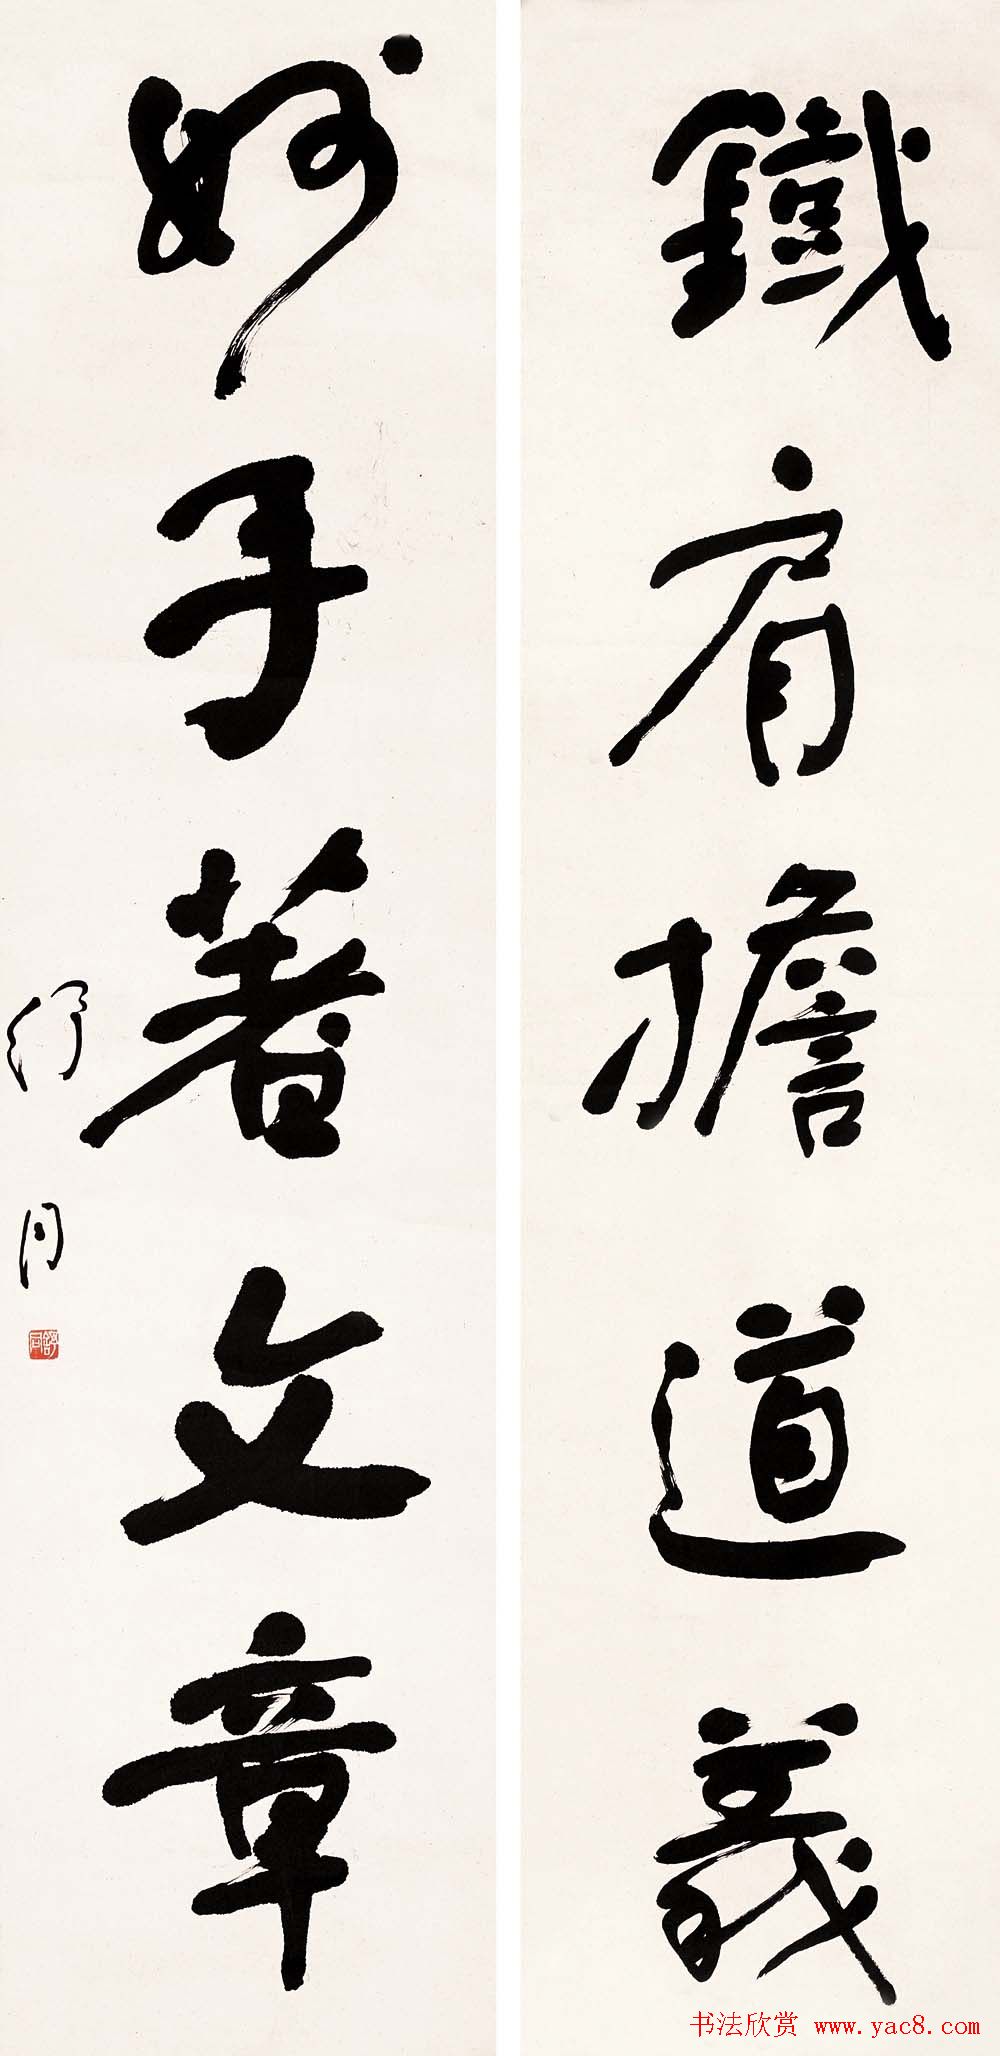 鐵肩擔道義
妙手著文章
舒同
舒同
书法欣赏 www.yac8.com